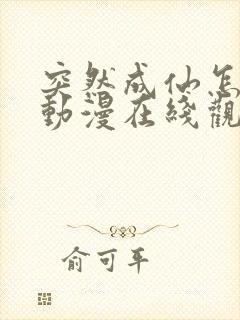 突然成仙怎
動漫在綫觀
俞可平